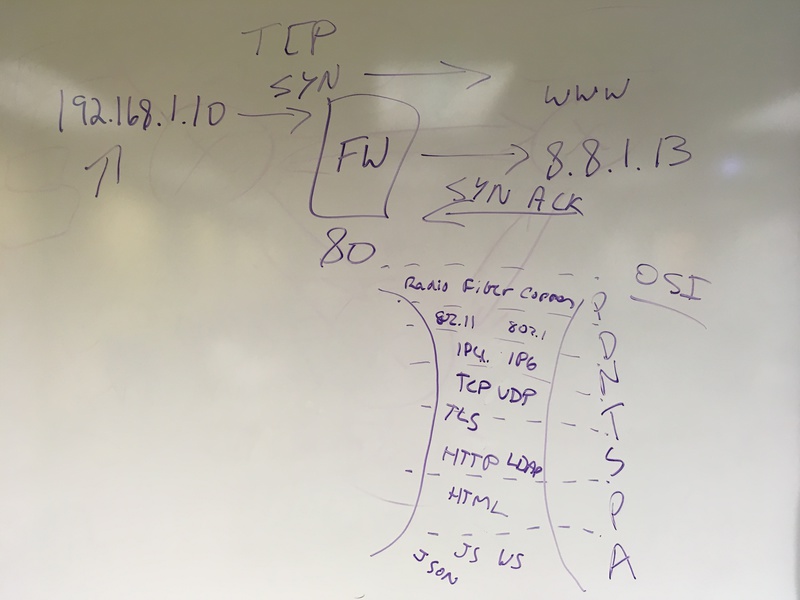 TCP
SYN
192.168.1.10
FW
WWW
8.8.1.13
SYN ACK
80
OSI
Radio Fiber Copper P
802.11 802.1 D
IP4. IP6 N
TCP UDP T
TLS S
HTTP LDAP
HTML P
JSON JS WS A